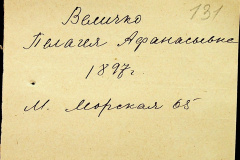 131
Величко
Пелагея Афанасьевна
1897 г.
М. Морская 65